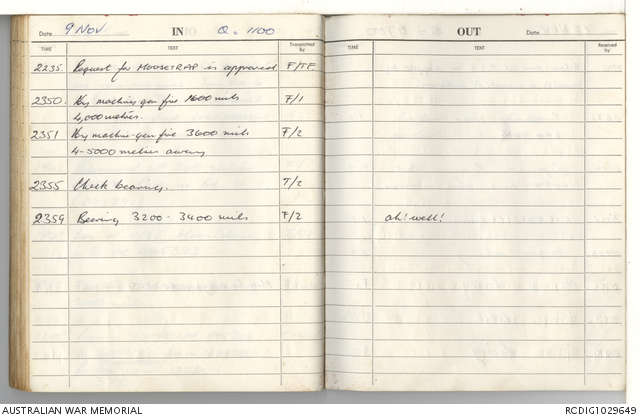 Date 9 Nov IN Q. 1100
TIME TEXT Transmitted by
2235. Request for MOOSETRAP is approved F/TE
2350. Hvy machine gun fire 1600 mils F/1
4,000 metres.
2351 Hvy machine-gun fire 3600 mils F/2
4-5000 metres away
2355 Check bearing. T/2
2359 Bearing 3200 - 3400 mils F/2
OUT Date
TIME TEXT Received by
ah! well!
AUSTRALIAN WAR MEMORIAL
RCDIG1029649